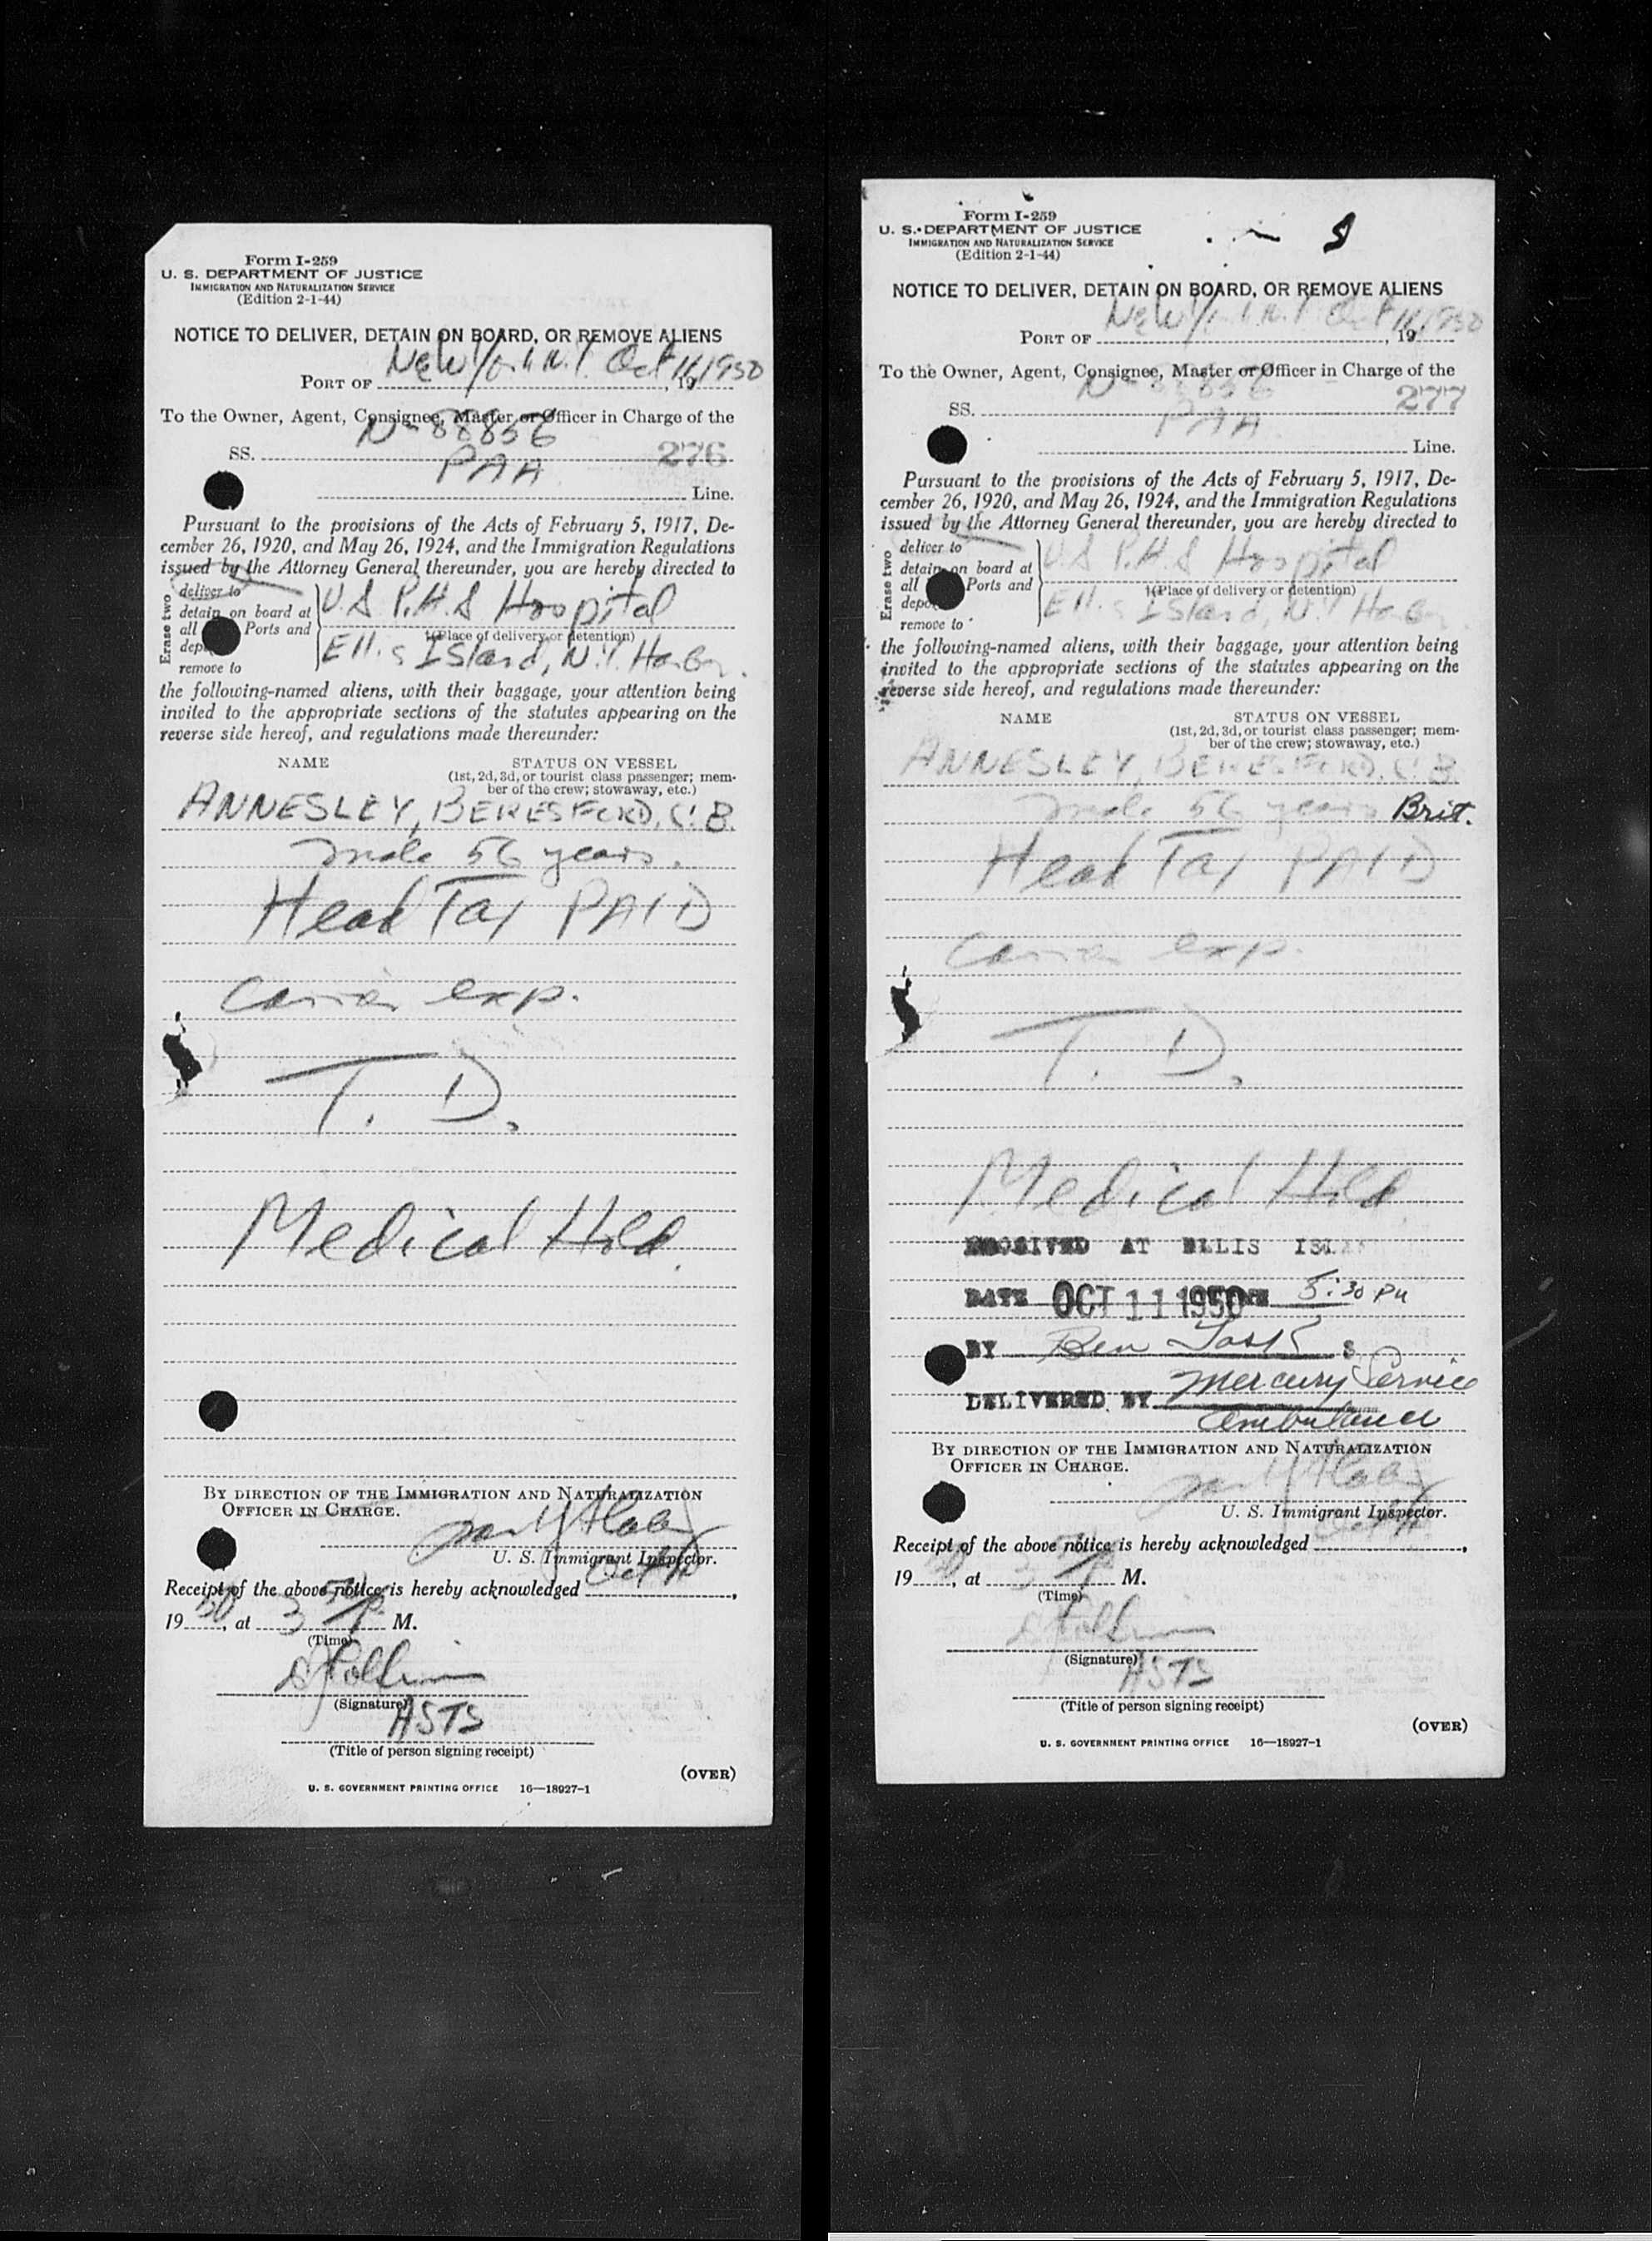 Form I-259
U. S. DEPARTMENT OF JUSTICE
IMMIGRATION AND NATURALIZATION SERVICE
(Edition 2-1-44)
NOTICE TO DELIVER, DETAIN ON BOARD, OR REMOVE ALIENS
PORT OF New York N.Y. Oct 11, 1950
To the Owner, Agent, Consignee, Master or Officer in Charge of the
SS. N-88856 276
PAA Line.
Pursuant to the provisions of the Acts of February 5, 1917, De-
cember 26, 1920, and May 26, 1924, and the Immigration Regulations
issued by the Attorney General thereunder, you are hereby directed to
Erase two
deliver to
detain on board at
all Ports and
remove to
U.S P.H.S Hospital
(Place of delivery or detention)
Ellis Island, N.Y. Harbor.
the following-named aliens, with their baggage, your attention being
invited to the appropriate sections of the statutes appearing on the
reverse side hereof, and regulations made thereunder:
NAME STATUS ON VESSEL
(1st, 2d, 3d, or tourist class passenger; mem-
ber of the crew; stowaway, etc.)
ANNESLEY, BERESFORD, C. B.
male 56 years.
Head Tax PAID
Carrier exp.
T. D.
Medical Hold.
BY DIRECTION OF THE IMMIGRATION AND NATURALIZATION
OFFICER IN CHARGE.
U. S. Immigrant Inspector.
Receipt of the above notice is hereby acknowledged Oct 11,
1950, at 3 P M.
(Time)
(Signature)
ASTS
(Title of person signing receipt)
(OVER)
U. S. GOVERNMENT PRINTING OFFICE 16—18927-1
Form I-259
U. S. DEPARTMENT OF JUSTICE
IMMIGRATION AND NATURALIZATION SERVICE
(Edition 2-1-44)
NOTICE TO DELIVER, DETAIN ON BOARD, OR REMOVE ALIENS
PORT OF New York N.Y. Oct 11, 1950
To the Owner, Agent, Consignee, Master or Officer in Charge of the
SS. N-88856 277
PAA Line.
Pursuant to the provisions of the Acts of February 5, 1917, De-
cember 26, 1920, and May 26, 1924, and the Immigration Regulations
issued by the Attorney General thereunder, you are hereby directed to
Erase two
deliver to
detain on board at
all Ports and
remove to
U.S P.H.S Hospital
(Place of delivery or detention)
Ellis Island, N.Y. Harbor
the following-named aliens, with their baggage, your attention being
invited to the appropriate sections of the statutes appearing on the
reverse side hereof, and regulations made thereunder:
NAME STATUS ON VESSEL
(1st, 2d, 3d, or tourist class passenger; mem-
ber of the crew; stowaway, etc.)
ANNESLEY, BERESFORD, C. B.
male 56 years Brit.
Head Tax PAID
Carrier exp.
T. D.
Medical Hold.
RECEIVED AT ELLIS ISLAND
DATE OCT 11 1950 TIME 5:30 PM
BY Ben
DELIVERED BY Mercury Service
Ambulance
BY DIRECTION OF THE IMMIGRATION AND NATURALIZATION
OFFICER IN CHARGE.
U. S. Immigrant Inspector.
Receipt of the above notice is hereby acknowledged Oct 11,
1950, at 3 P M.
(Time)
(Signature)
ASTS
(Title of person signing receipt)
(OVER)
U. S. GOVERNMENT PRINTING OFFICE 16—18927-1